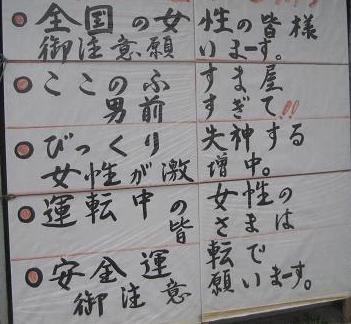 全国の女性の皆様
御注意願います。
ここのふすま屋
男前すぎて!!
びっくり失神する
女性が激増中。
運転中の女性の
皆さまは
安全運転で
御注意願います。